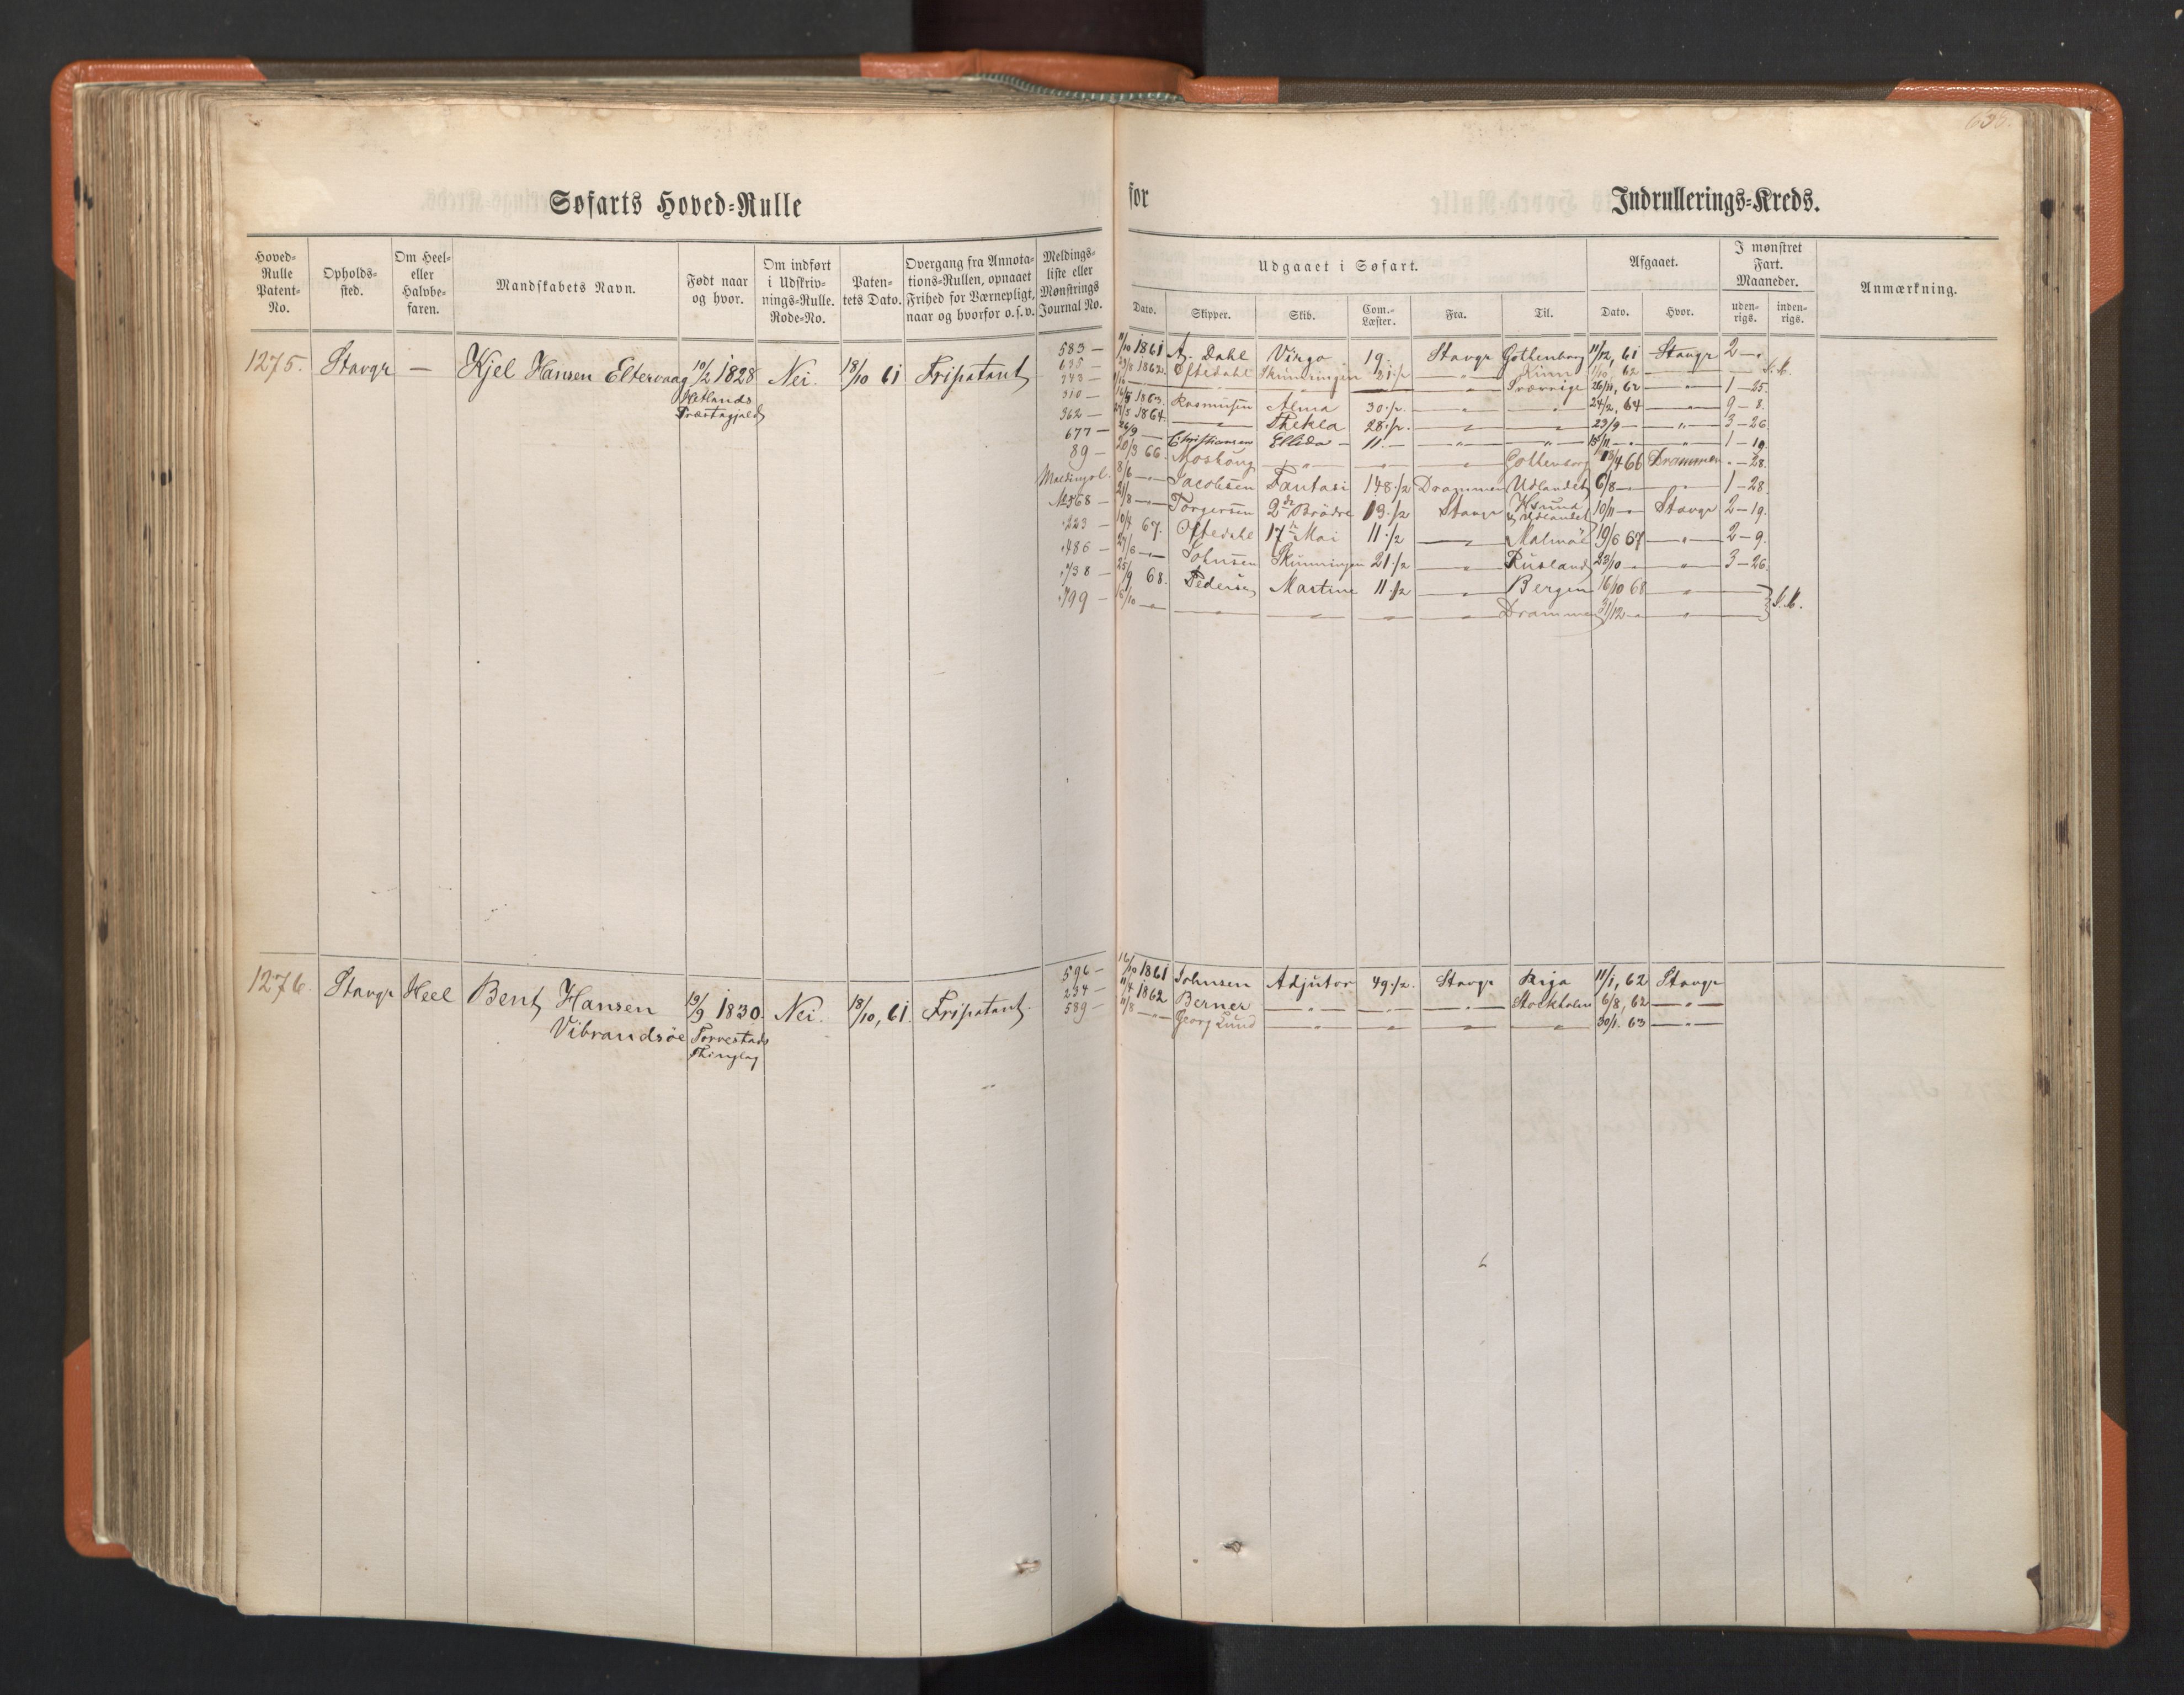 Søfarts Hoved-Rulle for Indrullerings-Kreds.
Hoved-Rulle Patent-No. Opholds-sted. Om Heel- eller Halvbe-faren. Mandskabets Navn. Født naar og hvor. Om indført i Udskriv-nings-Rulle. Rode-No. Paten-tets Dato. Overgang fra Annota-tions-Rullen, opnaaet Frihed for Værnepligt, naar og hvorfor o.s.v. Meldings-liste eller Mønstrings Journal No.
Udgaaet i Søfart. Afgaaet. I mønstret Fart. Maaneder. Anmærkning.
Dato. Skipper. Skib. Com.-Læster. Fra. Til. Dato. Hvor. uden-rigs. inden-rigs.
1275. Stavgr — Kjel Hansen Eltervaag 10/2 1828 Nei. 18/10 61 Fripatent
Hetlands
Præstegjeld
583 — 11/10 1861 A. Dahl Virgo 19. Stavgr Gothenborg 11/12, 61 Stavgr 2 —
635 — 1862 Oftedahl Skumringen 21 1/2 — " — Kinn 62 —
343 — — " — Sverrige 26/11, 62 — " — 1 — 25.
310 — 1863. Rasmusen Alma 30 1/2. — — 24/2, 64 — " — 9 — 8.
362 — 27/5 1864. — Thekla 28 1/2 — — 23/9 — — " — 3 — 26
677 — 26/9 — Christiansen Ellida — 11. — — " — — " — 15/11 — — " — 1 — 19.
89 — 20/3 66. Moskoug — " — — — Gothenborg 13/4 66 Drammen " — 28.
Meldingsl. 8/6 — " — Jacobsen Fantasi 148 1/2 Drammen Udlandet 6/8 — — " — 1 — 28.
No 568 — 21/8 — " — Torgersen 2de Brødre 13 1/2 Stavgr Udlandet 10/11 — Stavgr 2 — 19.
" 223 — 10/4 67. Oftedahl 17de Mai 11 1/2 — " — Malmøe 19/6 67 — " — 2 — 9.
" 486 — 27/6 — " — Johnsen Skumringen 21 1/2 — " — Rusland 23/10 — — " — 3 — 26.
" 738 — 25/9 68. Pedersen Martine 11 1/2 — " — Bergen 16/10 68 — " —
" 799 — — " — — " — — " — — " — — " — Drammen 31/12 — — " —
1276. Stavgr Heel Bent Hansen 19/9 1830. Nei. 18/10, 61. Fripatent.
Vibrandsøe Torvestads
Thinglag
596 — 16/10 1861 Johnsen Adjutor 49 1/2. Stavgr Riga 11/1, 62 Stavgr
234 — 11/4 1862 Berner — " — — " — — " — Stockholm 6/8, 62 — " —
589 — 11/8 — " — Georg Lund — " — — " — — " — — " — 30/1. 63 — " —